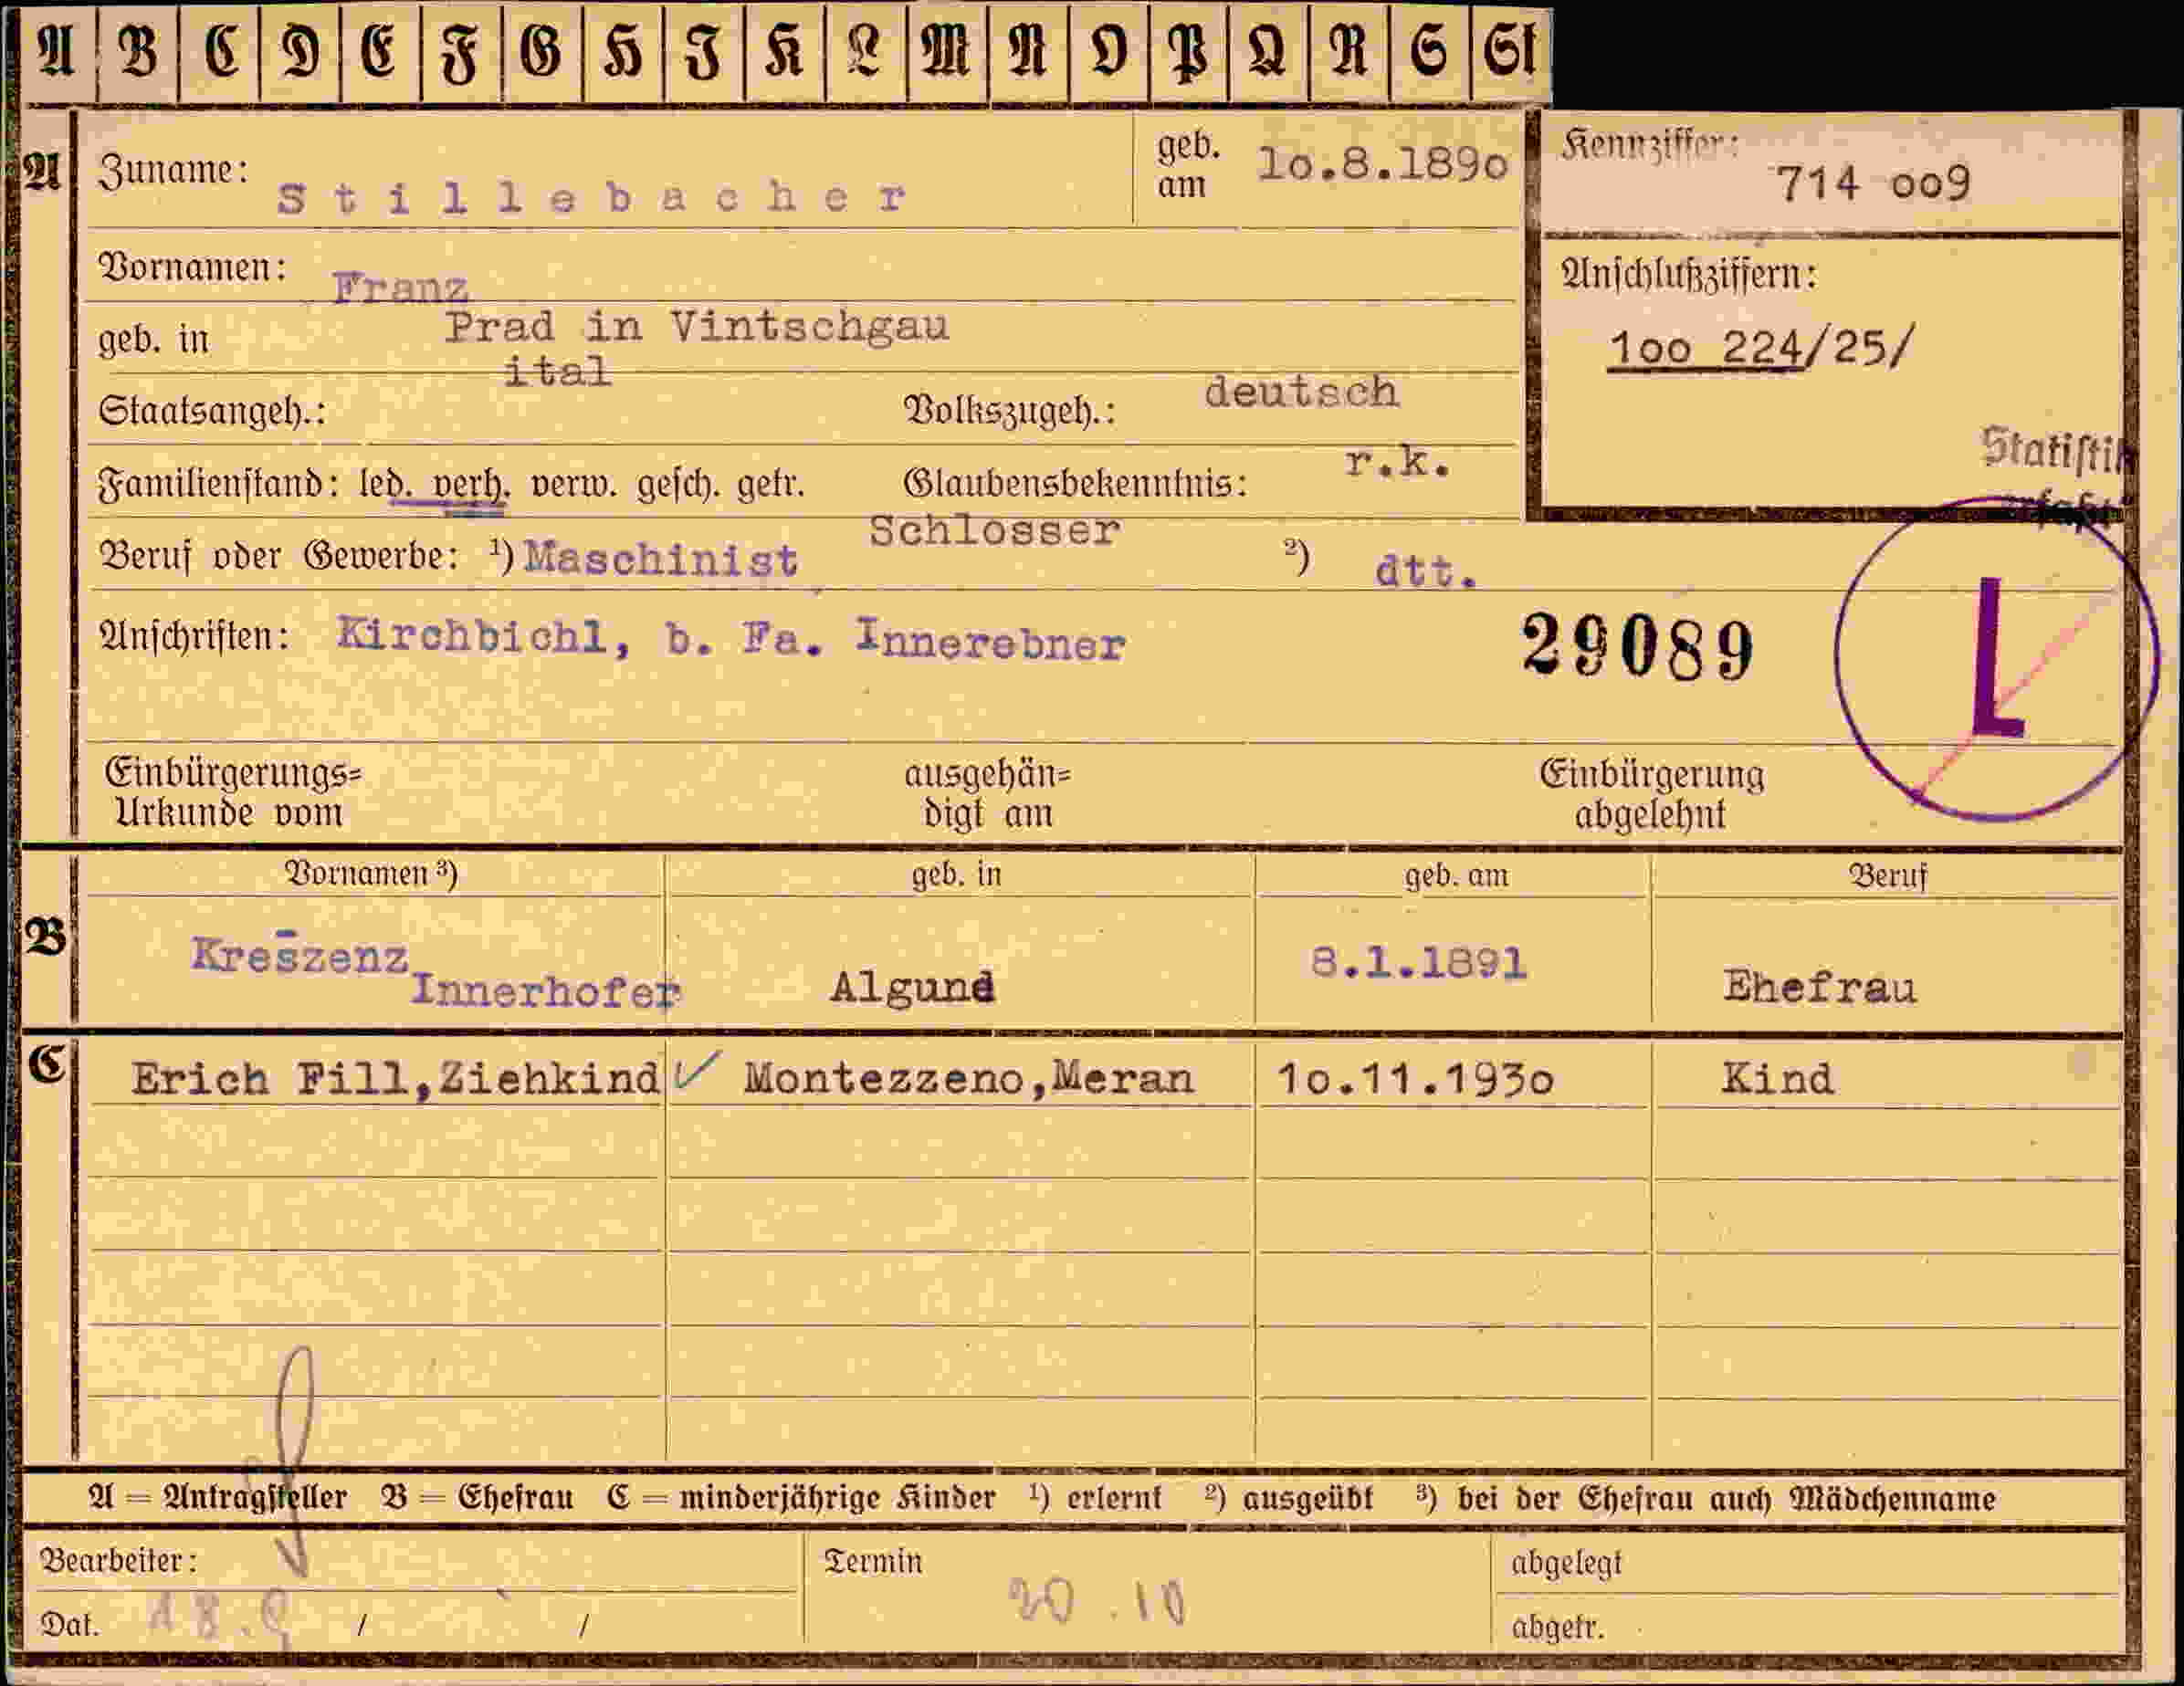 A B C D E F G H I K L M N O P Q R S St
A Zuname: Stillebacher geb. am 1o.8.189o
Kennziffer: 714 oo9
Vornamen: Franz
geb. in Prad in Vintschgau
Anschlußziffern:
1oo 224/25/
Staatsangeh.: ital Volkszugeh.: deutsch
Statistik
erfaßt
Familienstand: led. verh. verw. gesch. getr. Glaubensbekenntnis: r.k.
Schlosser
Beruf oder Gewerbe: ¹) Maschinist ²) dtt.
Anschriften: Kirchbichl, b. Fa. Innerebner
29089
L
Einbürgerungs= ausgehän= Einbürgerung
Urkunde vom digt am abgelehnt
Vornamen ³) geb. in geb. am Beruf
B Kreszenz Innerhofer Algund 8.1.1891 Ehefrau
C Erich Fill,Ziehkind ✓ Montezzeno,Meran 1o.11.193o Kind
A = Antragsteller B = Ehefrau C = minderjährige Kinder ¹) erlernt ²) ausgeübt ³) bei der Ehefrau auch Mädchenname
Bearbeiter: Termin abgelegt
20.10
Dat. 18.9 / / abgetr.